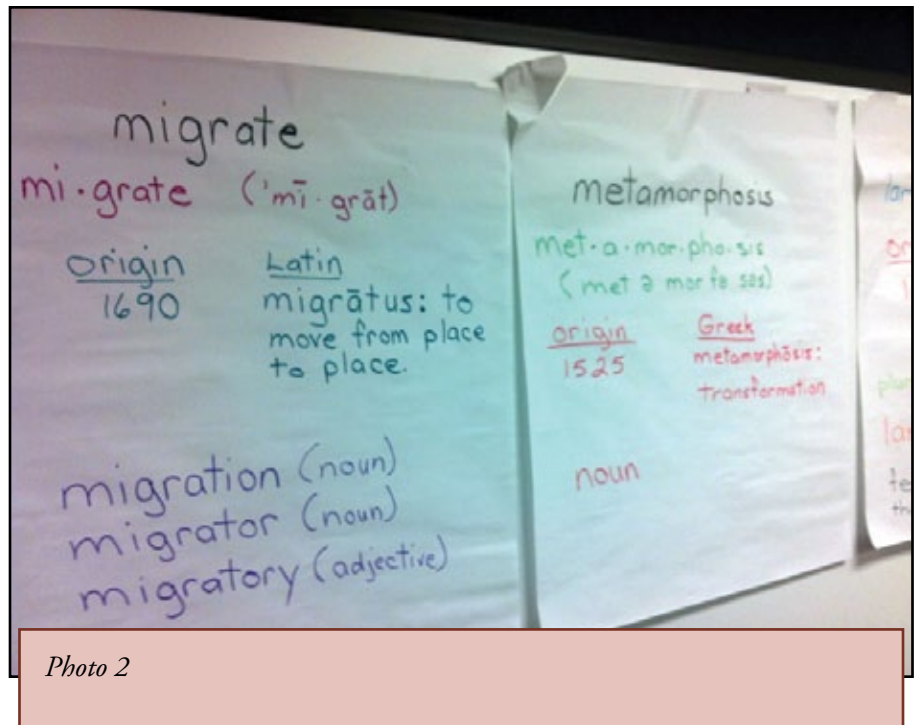 migrate
mi·grate (ˈmī·grāt)
origin
1690
Latin
migrātus: to
move from place
to place.
migration (noun)
migrator (noun)
migratory (adjective)
metamorphosis
met·a·mor·pho·sis
(met ə mor fə səs)
origin
1525
Greek
metamorphōsis:
transformation
noun
Photo 2